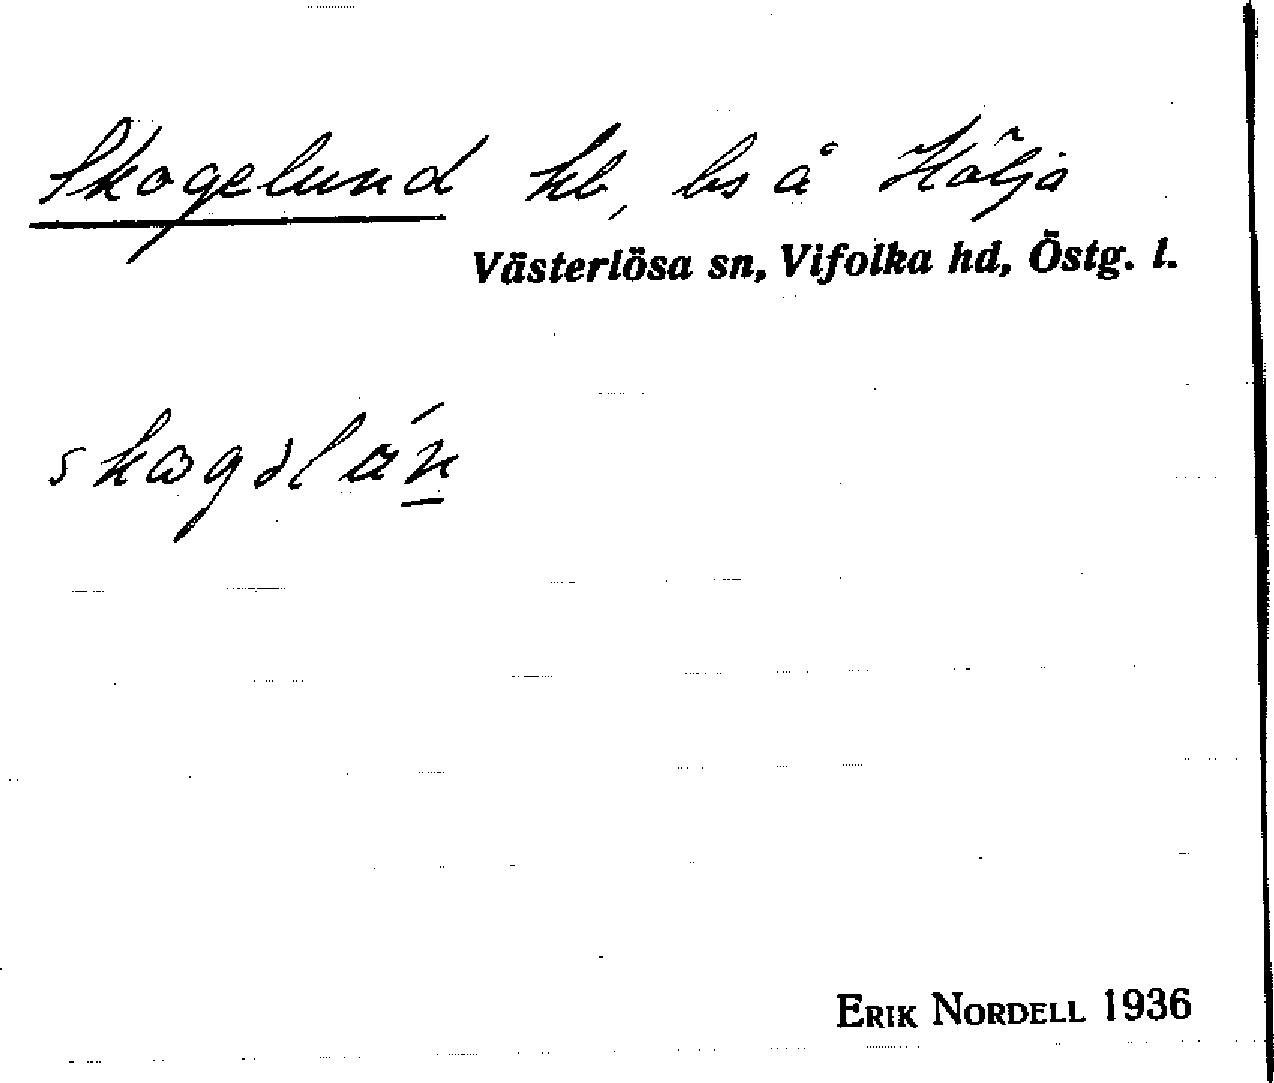 Skogelund hl, bs å Hälja
Västerlösa sn, Vifolka hd, Östg. l.
ERIK NORDELL 1936